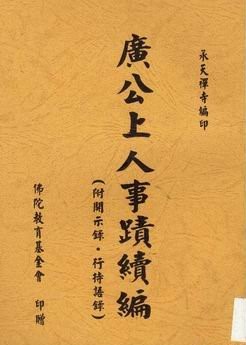 承天禪寺編印
廣公上人事蹟續編
(附開示錄・行持語錄)
佛陀教育基金會 印贈